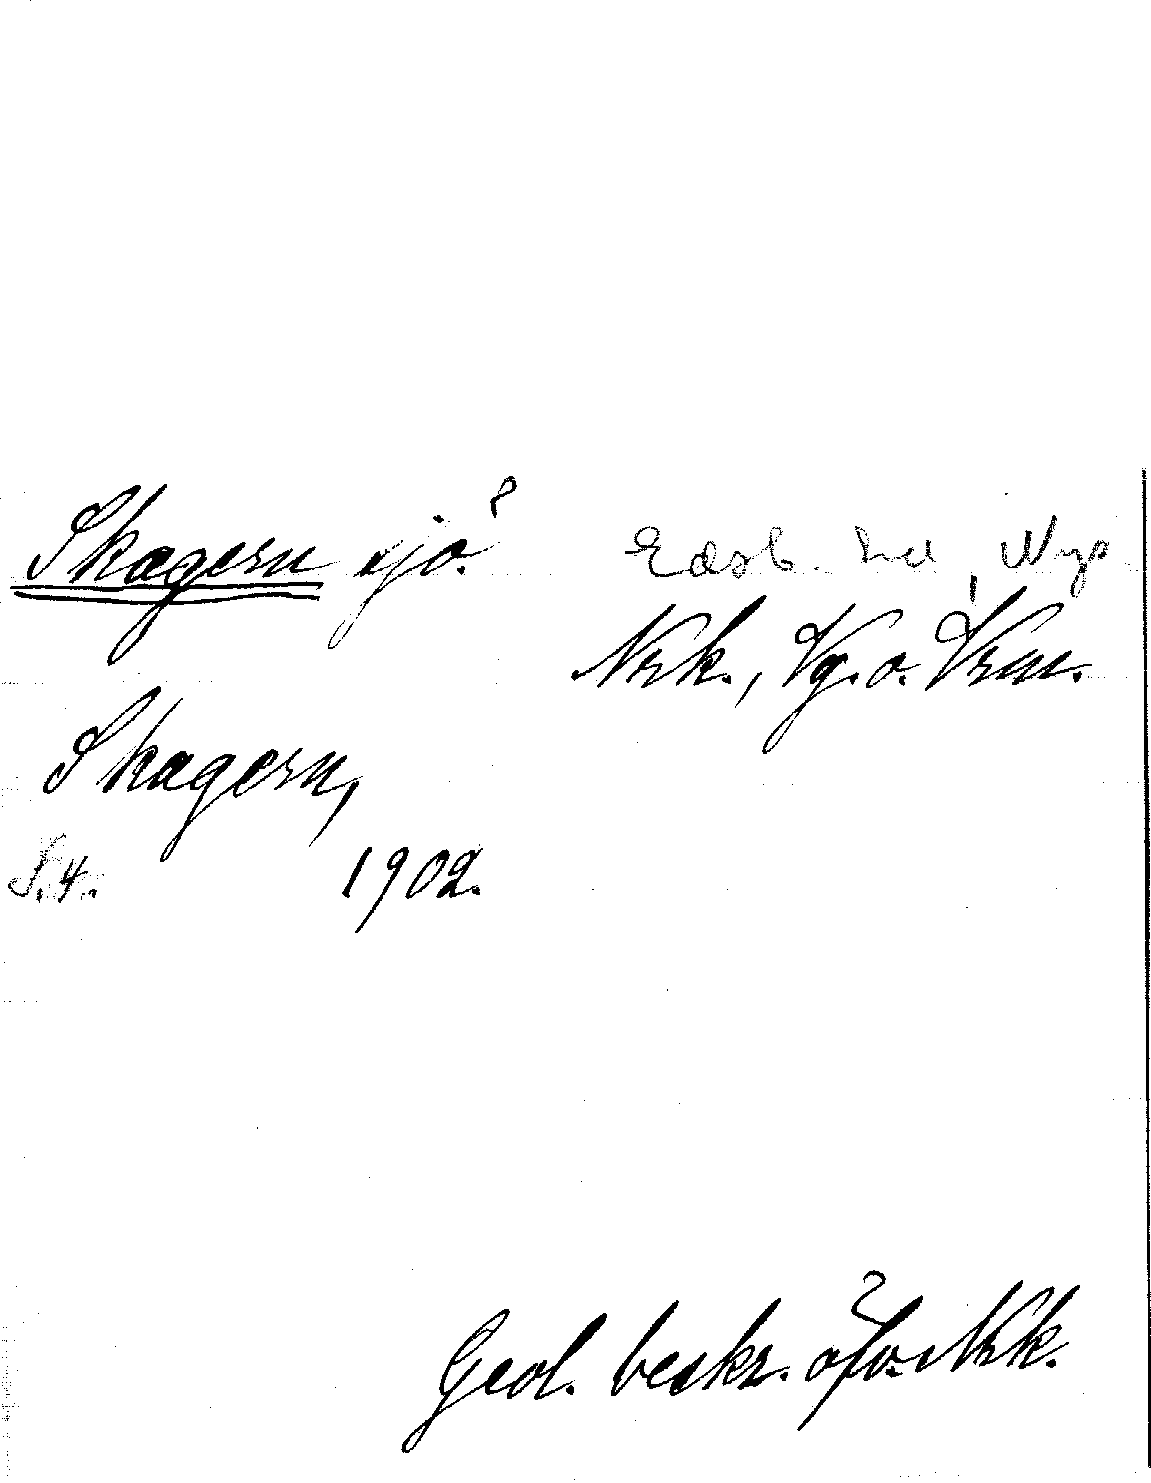 Skagern sjö. Edsb. hd, Nys
Nrk., Vg. o. Vrm.
Skagern,
S. 4. 1902.
Geol. beskr. öfv. Nrk.